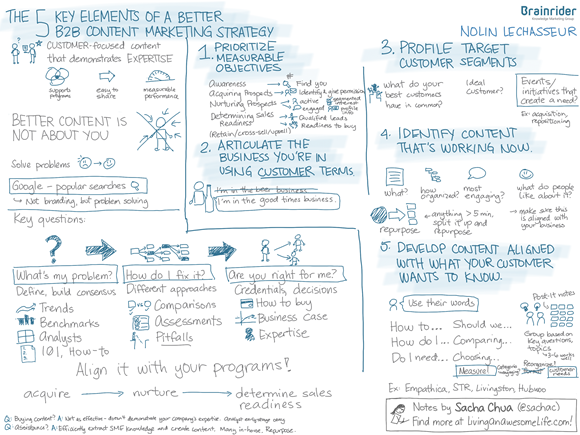 THE 5 KEY ELEMENTS OF A BETTER
B2B CONTENT MARKETING STRATEGY
Brainrider
Knowledge Marketing Group
NOLIN LECHASSEUR
CUSTOMER-FOCUSED content
that demonstrates EXPERTISE
supports programs
easy to share
measurable performance
BETTER CONTENT IS
NOT ABOUT YOU
Solve problems
Google - popular searches
Not branding, but problem solving
1. PRIORITIZE
MEASURABLE
OBJECTIVES
Awareness
Find you
Acquiring Prospects
Identify & give permission
Nurturing Prospects
active
engaged
segmented
interest
profile
info
Determining Sales
Readiness
Qualified leads
Readiness to buy
(Retain/cross-sell/upsell)
2. ARTICULATE THE
BUSINESS YOU'RE IN
USING CUSTOMER TERMS
I'm in the beer business
I'm in the good times business.
3. PROFILE TARGET
CUSTOMER SEGMENTS
what do your
best customers
have in common?
Ideal
customer?
Events/
initiatives that
create a need?
Ex: acquisition,
repositioning
4. IDENTIFY CONTENT
THAT'S WORKING NOW.
what?
how
organized?
most
engaging?
what do people
like about it?
repurpose
anything > 5 min,
split it up and
repurpose
make sure this
is aligned with
your business
5. DEVELOP CONTENT ALIGNED
WITH WHAT YOUR CUSTOMER
WANTS TO KNOW.
Use their words
Post-it notes
How to...
Should we...
How do I...
Comparing...
Do I need...
Choosing...
Group based on
key questions,
topics
4-6 works
well
Measure!
Reorganize?
format
customer needs
Ex: Empathica, STR, Livingston, Hubwoo
Key questions:
What's my problem?
How do I fix it?
Are you right for me?
Define, build consensus
Different approaches
Credentials, decisions
Trends
Comparisons
How to buy
Benchmarks
Assessments
Business Case
Analysts
Pitfalls
Expertise
101, How-to
Align it with your programs!
acquire
nurture
determine sales
readiness
Q: Buying content? A: Not as effective - doesn't demonstrate your company's expertise.
Q: Assistance? A: Efficiently extract SME knowledge and create content. Many in-house. Repurpose.
Notes by Sacha Chua (@sachac)
Find more at LivingAnAwesomeLife.com!